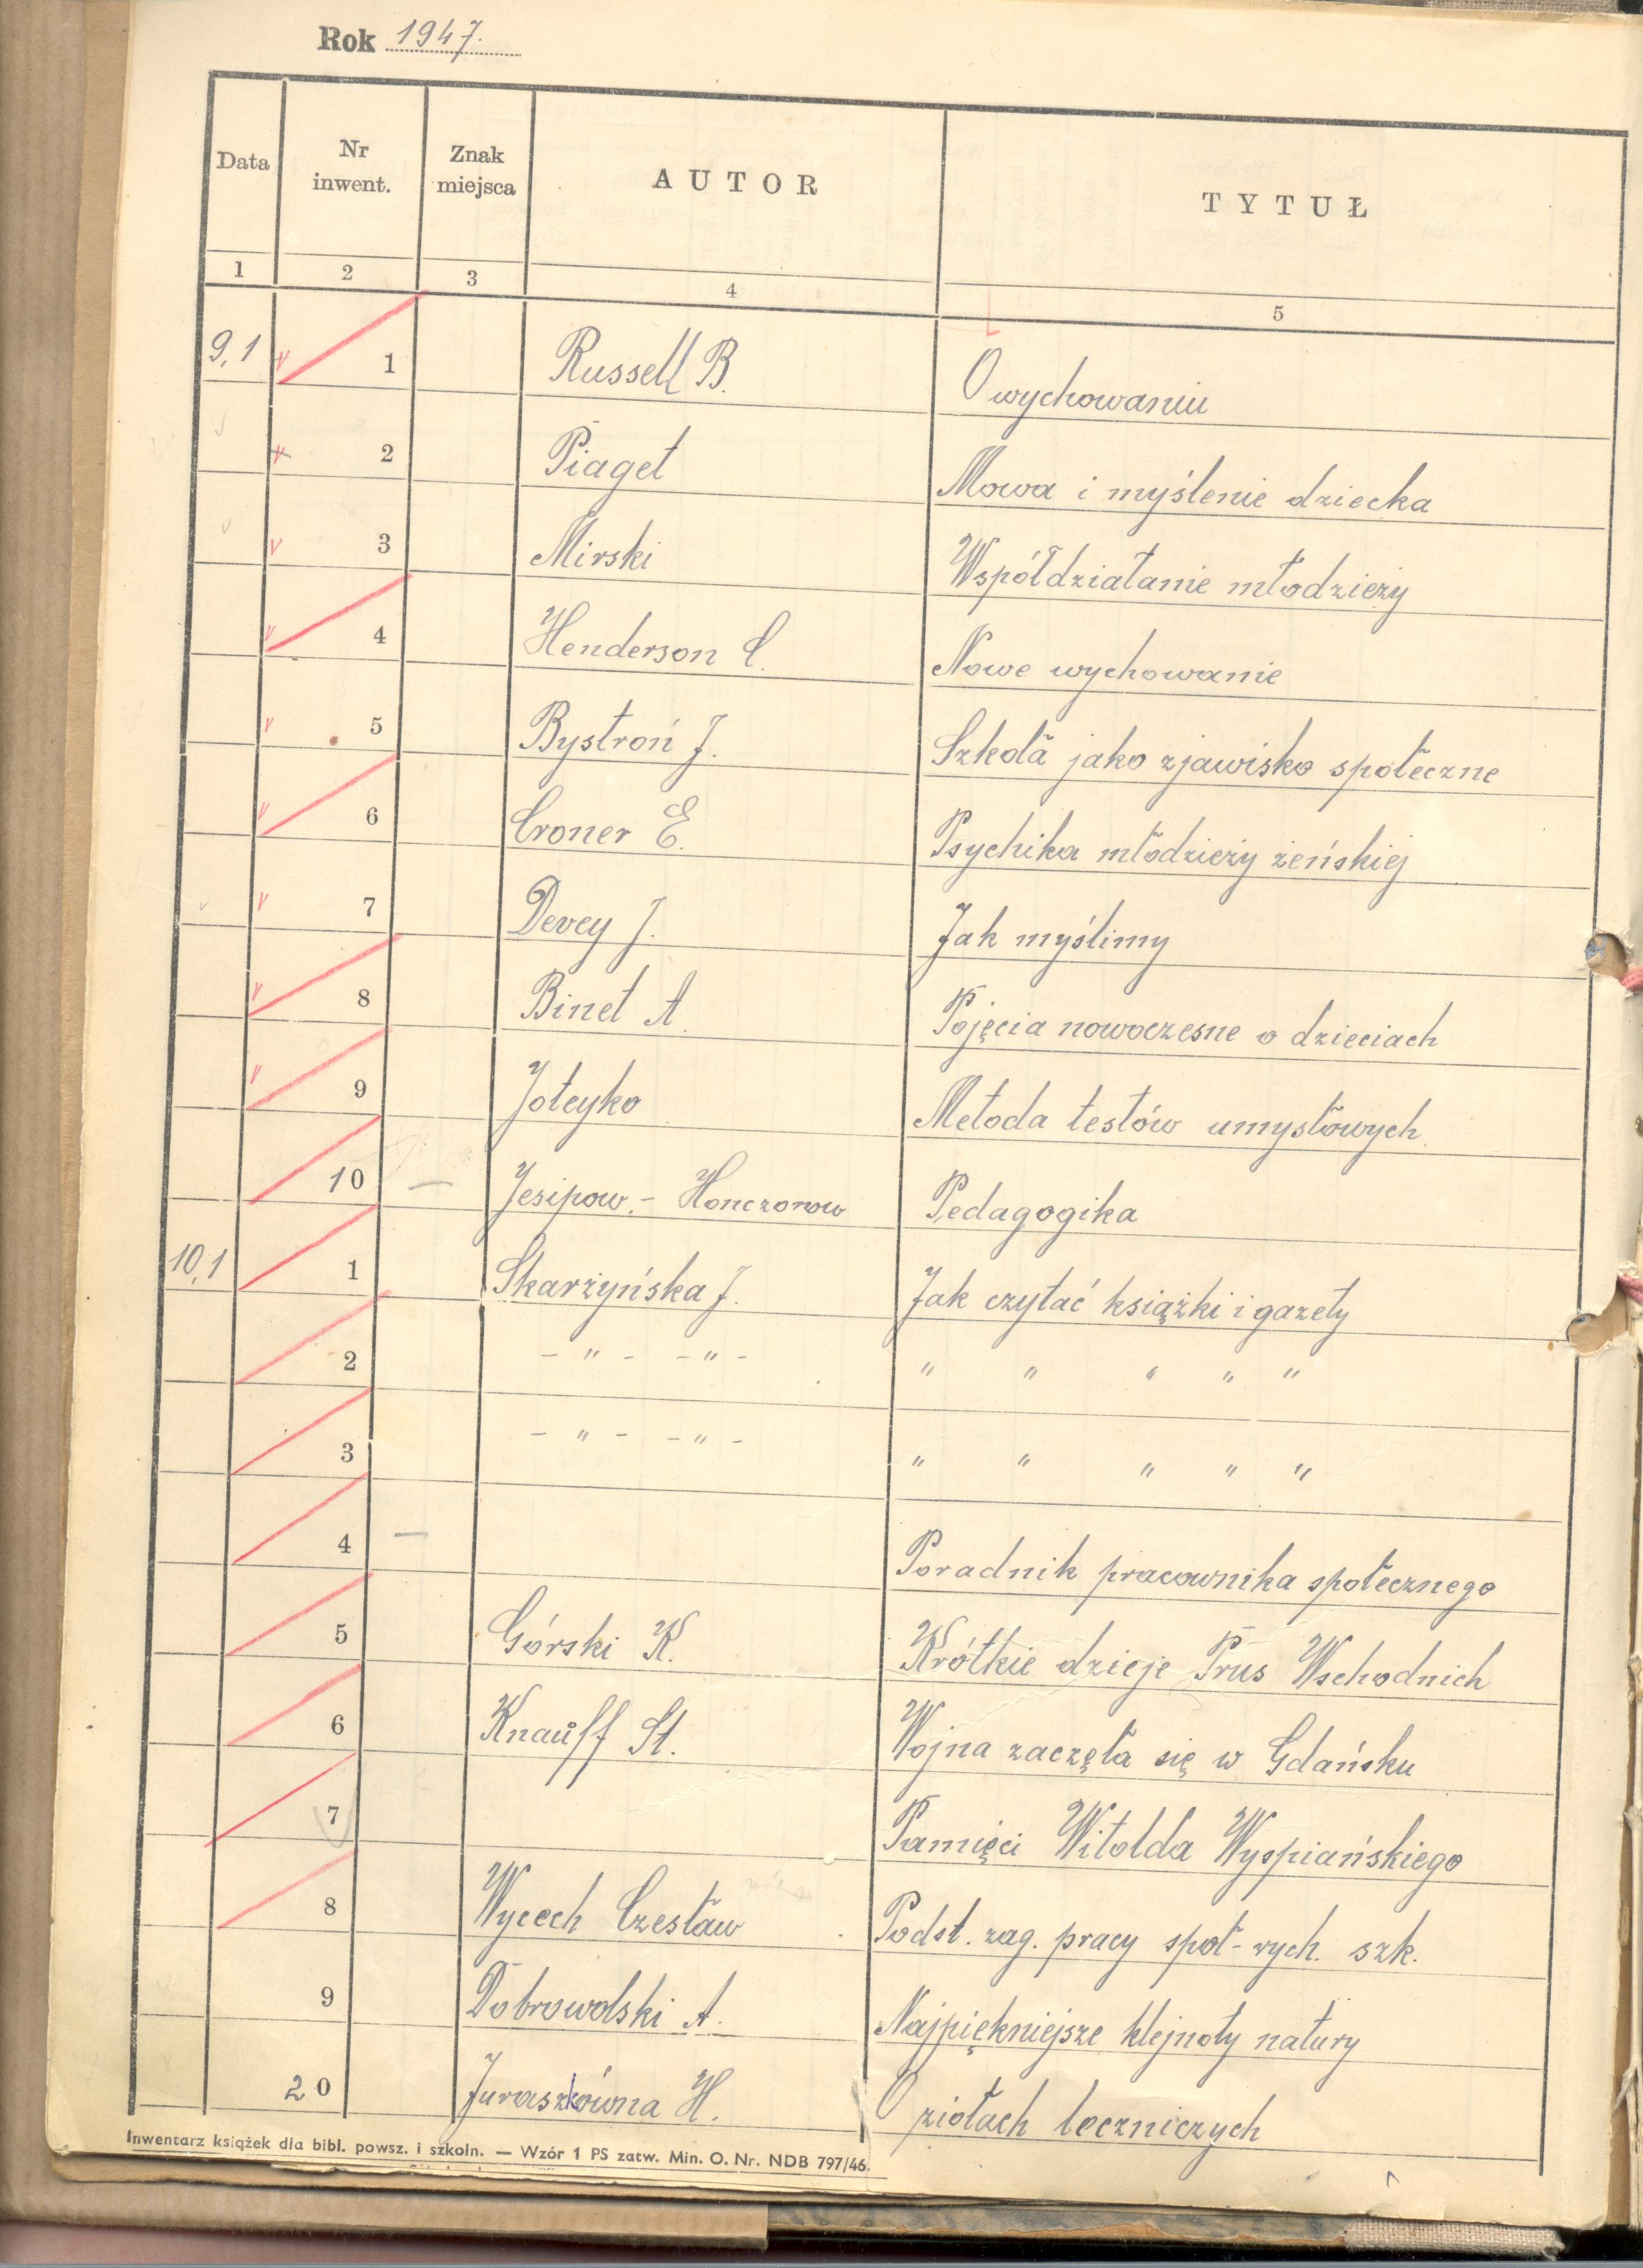 Rok 1947.
Data Nr inwent. Znak miejsca AUTOR TYTUŁ
1 2 3 4 5
9,1 1 Russell B. O wychowaniu
2 Piaget Mowa i myślenie dziecka
3 Mirski Współdziałanie młodzieży
4 Henderson C. Nowe wychowanie
5 Bystroń J. Szkoła jako zjawisko społeczne
6 Croner E. Psychika młodzieży żeńskiej
7 Devey J. Jak myślimy
8 Binet A. Pojęcia nowoczesne o dzieciach
9 Joteyko Metoda testów umysłowych
10 — Jesipow.- Honczorow Pedagogika
10,1 1 Skarżyńska J. Jak czytać książki i gazety
2 - " - - " - " " " " "
3 - " - - " - " " " " "
4 — Poradnik pracownika społecznego
5 Górski K. Krótkie dzieje Prus Wschodnich
6 Knauff St. Wojna zaczęła się w Gdańsku
7 Pamięci Witolda Wyspiańskiego
8 Wycech Czesław Podst. zag. pracy społ-wych. szk.
9 Dobrowolski A. Najpiękniejsze klejnoty natury
20 Juraszkówna H. O ziołach leczniczych
Inwentarz książek dla bibl. powsz. i szkoln. — Wzór 1 PS zatw. Min. O. Nr. NDB 797/46.